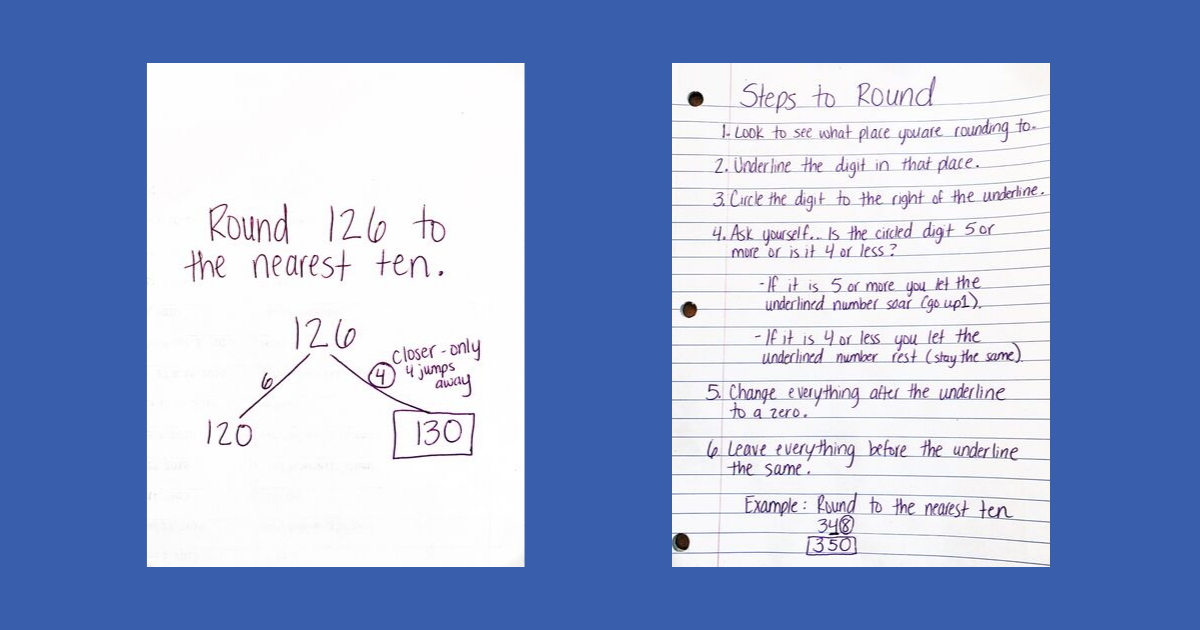 Round 126 to
the nearest ten.
126
6
4
closer - only
4 jumps
away
120
130
Steps to Round
1. Look to see what place you are rounding to.
2. Underline the digit in that place.
3. Circle the digit to the right of the underline.
4. Ask yourself... Is the circled digit 5 or
more or is it 4 or less?
- If it is 5 or more you let the
underlined number soar (go up 1).
- If it is 4 or less you let the
underlined number rest (stay the same).
5. Change everything after the underline
to a zero.
6. Leave everything before the underline
the same.
Example: Round to the nearest ten
348
350